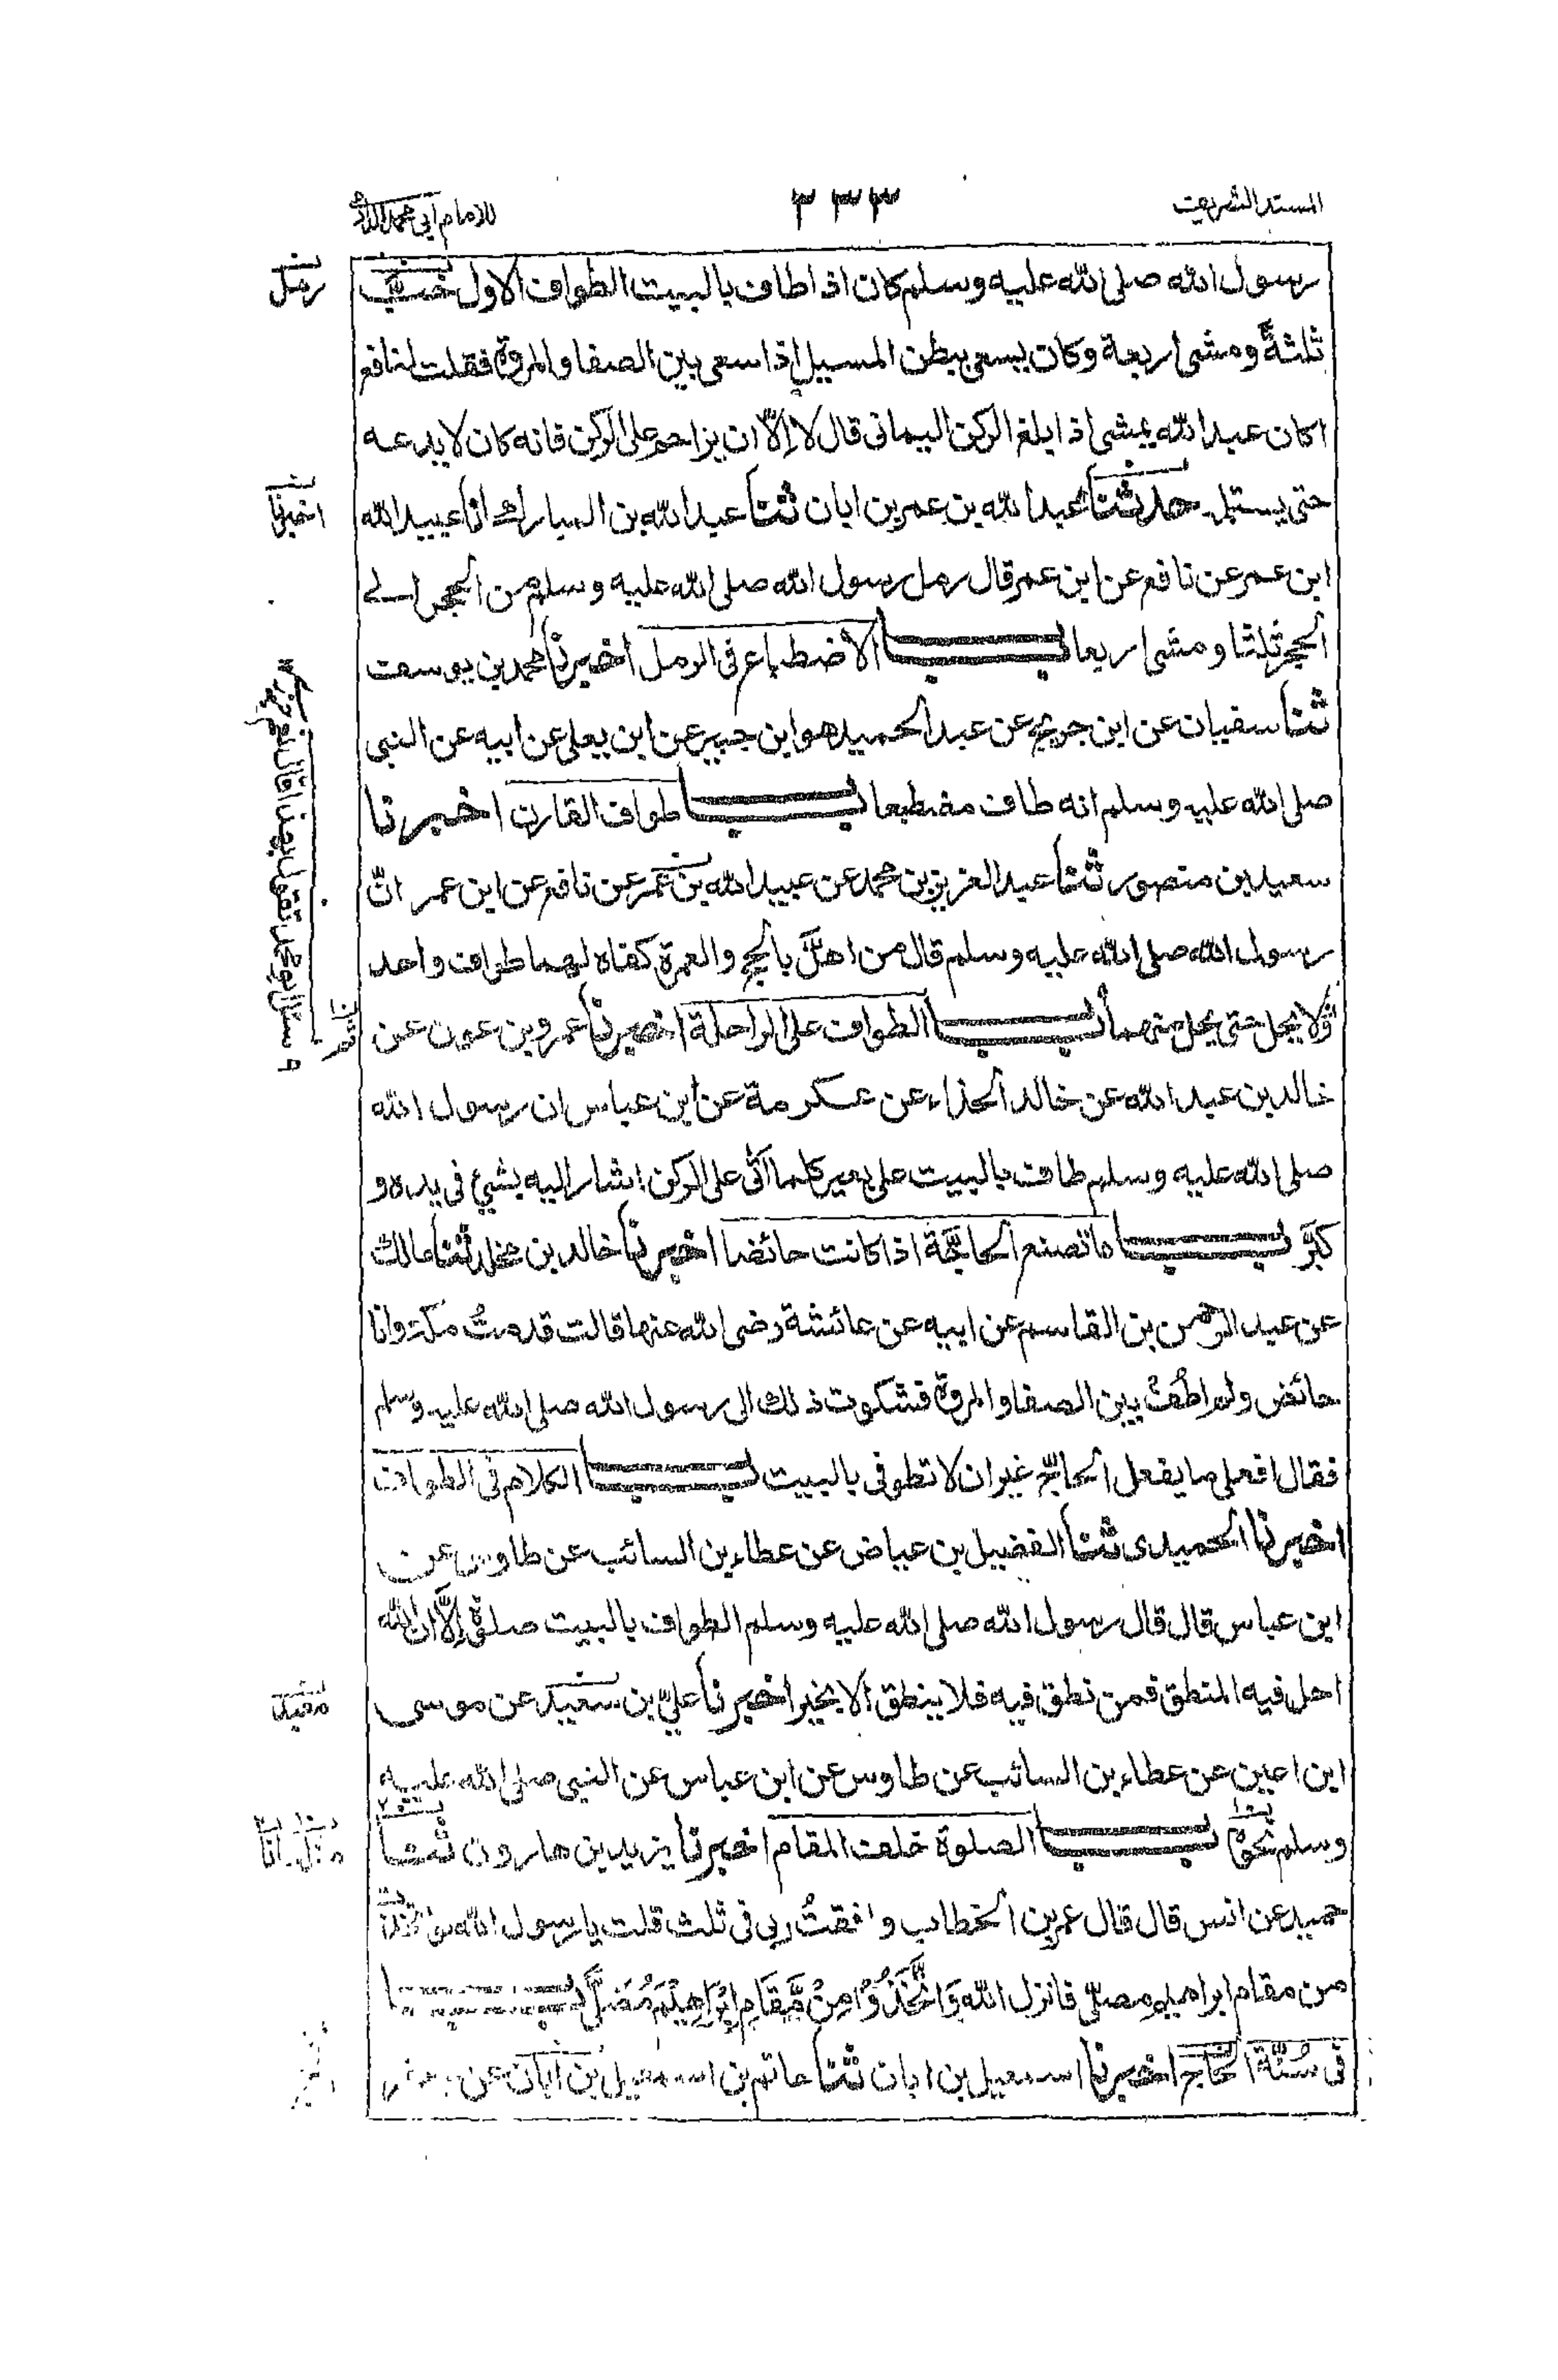 المسند الشريف
٣٣٣
للامام ابي محمد الدارمي
رسول الله صلى الله عليه وسلم كان اذا طاف بالبيت الطواف الاول خب
رمل
ثلثةً ومشى اربعة وكان يسعى ببطن المسيل اذا سعى بين الصفا والمروة فقلت لنافع
اكان عبد الله يمشى اذا بلغ الركن اليمانى قال لا إلّا ان يزاحم على الركن فانه كان لا يدعه
حتى يستلم حدثنا عبد الله بن عمر بن ابان ثنا عبد الله بن المبارك انا عبيد الله
اخبرنا
ابن عمر عن نافع عن ابن عمر قال رمل رسول الله صلى الله عليه وسلم من الحجر الى
الحجر ثلثا ومشى اربعا باب الاضطباع فى الرمل اخبرنا محمد بن يوسف
ثنا سفيان عن ابن جريج عن عبد الحميد هو ابن جبير عن ابن يعلى عن ابيه عن النبى
صلى الله عليه وسلم انه طاف مضطبعا باب طواف القارن اخبرنا
سعيد بن منصور ثنا عبد العزيز بن محمد عن عبيد الله بن عمر عن نافع عن ابن عمر انّ
رسول الله صلى الله عليه وسلم قال من اهلّ بالحج والعمرة كفاه لهما طواف واحد
ولا يحل حتى يحل منهما باب الطواف على الراحلة اخبرنا عمرو بن عون عن
خالد بن عبد الله عن خالد الحذاء عن عكرمة عن ابن عباس ان رسول الله
صلى الله عليه وسلم طاف بالبيت على بعير كلما اتى على الركن اشار اليه بشئ فى يده و
كبّر باب ما تصنع الحاجّة اذا كانت حائضا اخبرنا خالد بن مخلد ثنا مالك
عن عبد الرحمن بن القاسم عن ابيه عن عائشة رضى الله عنها قالت قدمتُ مكة وانا
حائض ولم اطُفْ بين الصفا والمروة فشكوت ذلك الى رسول الله صلى الله عليه وسلم
فقال افعلى ما يفعل الحاجّ غير ان لا تطوفى بالبيت باب الكلام فى الطواف
اخبرنا الحميدى ثنا الفضيل بن عياض عن عطاء بن السائب عن طاوس عن
ابن عباس قال قال رسول الله صلى الله عليه وسلم الطواف بالبيت صلوة إلّا ان الله
احل فيه المنطق فمن نطق فيه فلا ينطق الا بخير اخبرنا عليّ بن سعيد عن موسى
معبد
ابن اعين عن عطاء بن السائب عن طاوس عن ابن عباس عن النبى صلى الله عليه
وسلم نحوه باب الصلوة خلف المقام اخبرنا يزيد بن هارون ثنا
انا
حميد عن انس قال قال عمر بن الخطاب وافقتُ ربى فى ثلث قلت يا رسول الله
من مقام ابراهيم مصلّى فانزل الله وَاتَّخَذُوْا مِنْ مَّقَامِ اِبْرَاهِيْمَ مُصَلًّى باب
فى سُنّة الحاج اخبرنا اسمعيل بن ابان ثنا حاتم بن اسمعيل بن ابان عن